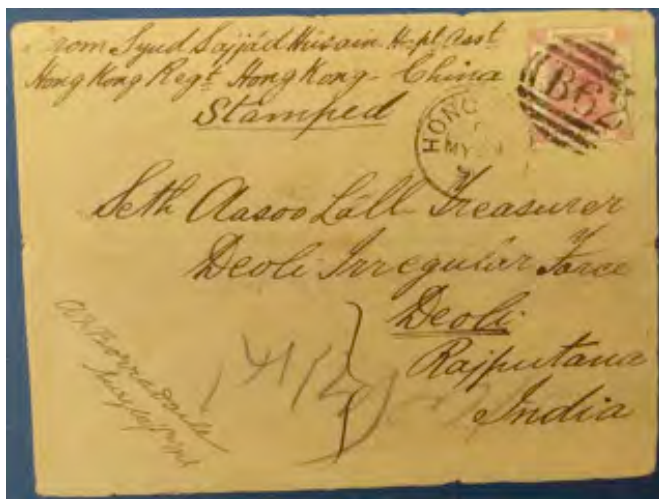 From Syud Sajjád Husain Hspl. Asst
Hong Kong Regt. Hong Kong - China
Stamped
B62
HONG
MY
Seth Aasoo Láll Treasurer
Deoli Irregular Force
Deoli
Rajputana
India